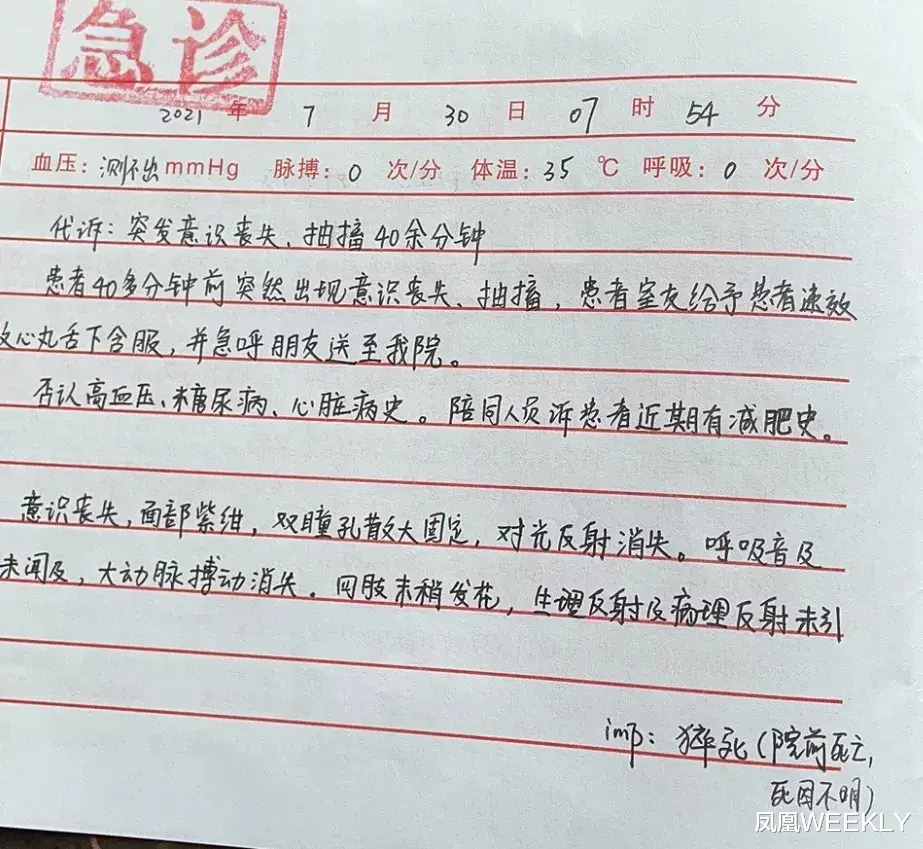 急诊
2021 年 7 月 30 日 07 时 54 分
血压：测不出mmHg 脉搏：0 次/分 体温：35 ℃ 呼吸：0 次/分
代诉：突发意识丧失、抽搐40余分钟
患者40多分钟前突然出现意识丧失、抽搐，患者室友给予患者速效
救心丸舌下含服，并急呼朋友送至我院。
否认高血压、糖尿病、心脏病史。陪同人员诉患者近期有减肥史。
意识丧失，面部紫绀，双瞳孔散大固定，对光反射消失。呼吸音及
未闻及，大动脉搏动消失。四肢末稍发花，生理反射及病理反射未引
imp：猝死（院前死亡，
死因不明）
凤凰WEEKLY